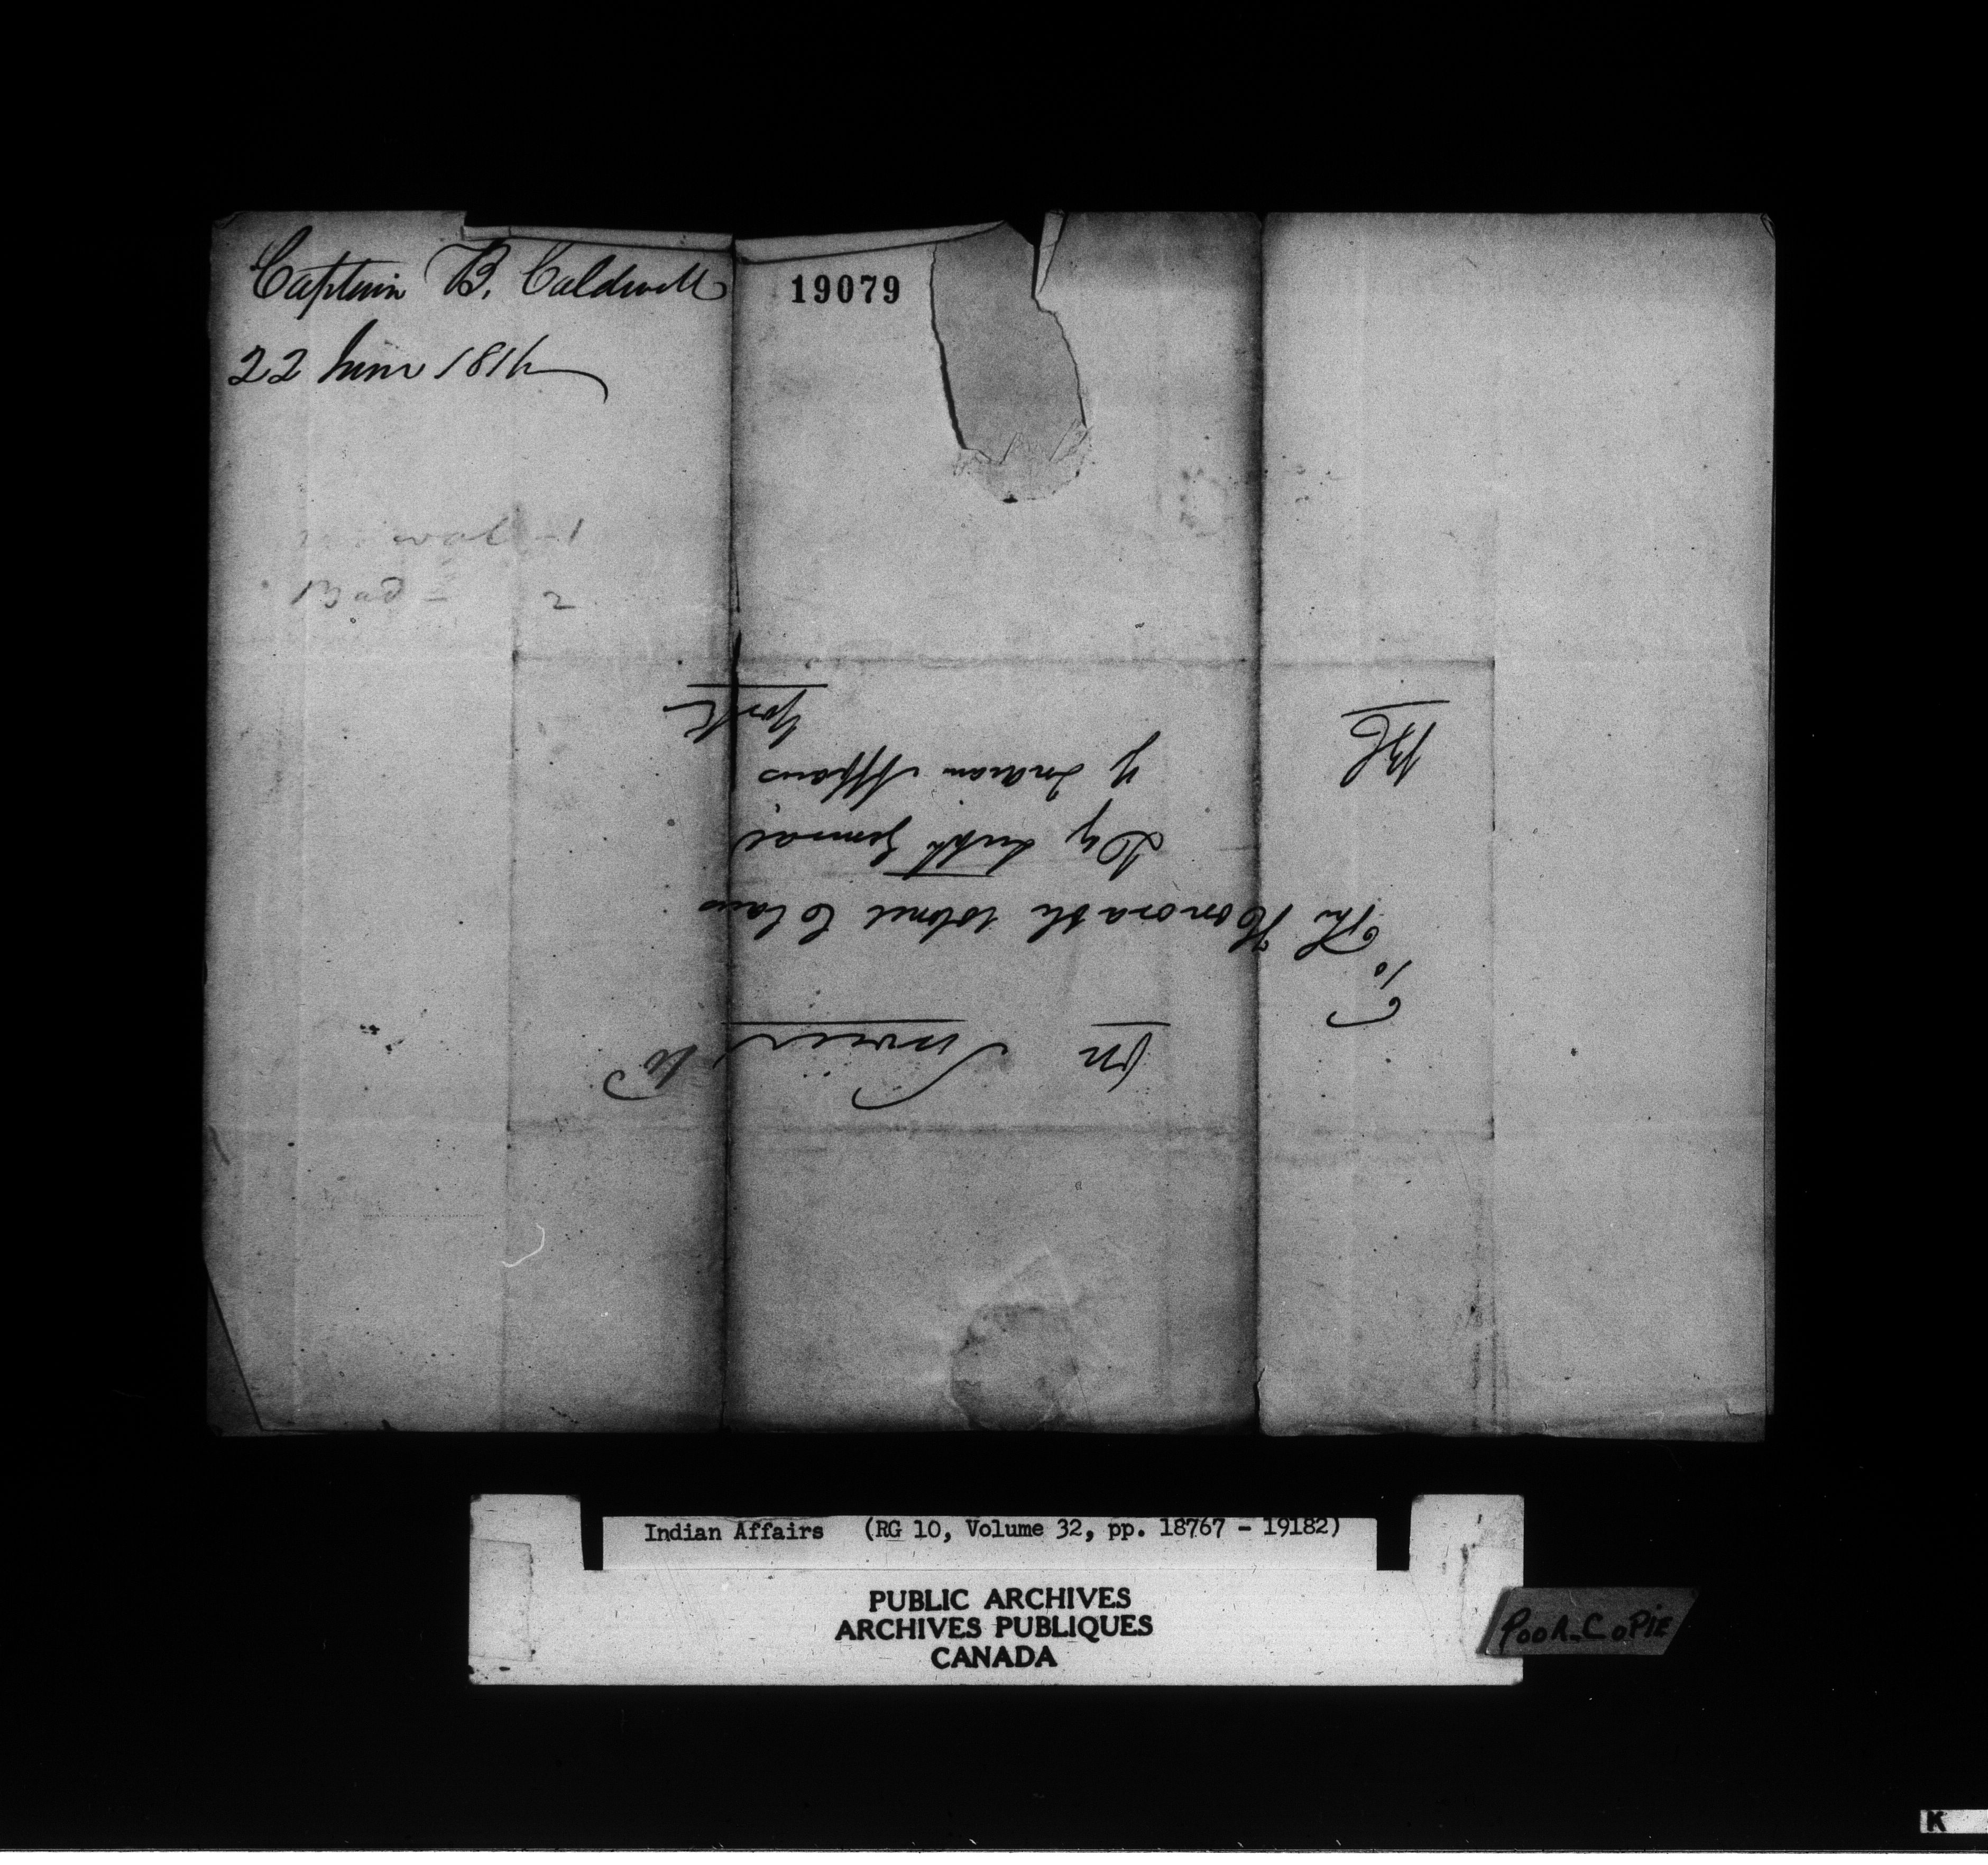 Captain B. Caldwell
22 June 1816
19079
Bad = 2
On Service
To
The Honorable Colonel Claus
Dy Supt General
of Indian Affairs
York
BC
Indian Affairs (RG 10, Volume 32, pp. 18767 - 19182)
PUBLIC ARCHIVES
ARCHIVES PUBLIQUES
CANADA
POOR COPIE
K